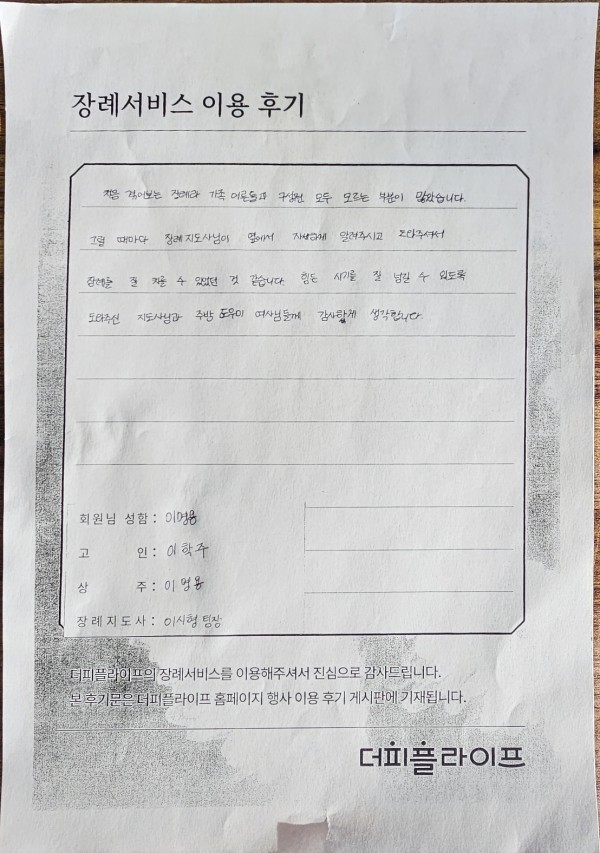 장례서비스 이용 후기
처음 겪어보는 장례라 가족 어른들과 구성원 모두 모르는 부분이 많았습니다.
그럴 때마다 장례지도사님이 옆에서 자상하게 알려주시고 도와주셔서
장례를 잘 치를 수 있었던 것 같습니다. 힘든 시기를 잘 넘길 수 있도록
도와주신 지도사님과 주방 도우미 여사님들께 감사하게 생각합니다.
회원님 성함 : 이명용
고 인 : 이학주
상 주 : 이명용
장례지도사 : 이시형 팀장
더피플라이프의 장례서비스를 이용해주셔서 진심으로 감사드립니다.
본 후기문은 더피플라이프 홈페이지 행사 이용 후기 게시판에 기재됩니다.
더피플라이프